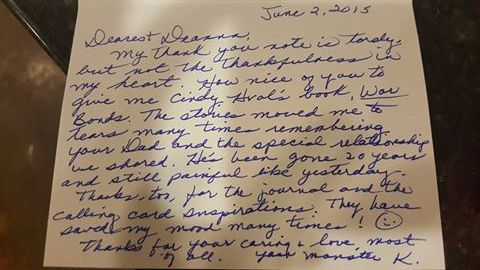 June 2, 2015
Dearest Deanna,
My thank you note is tardy,
but not the thankfulness in
my heart. How nice of you to
give me Cindy Hval's book, War
Bonds. The stories moved me to
tears many times remembering
your Dad and the special relationship
we shared. He's been gone 20 years
and still painful like yesterday.
Thanks, too, for the journal and the
calling card inspirations. They have
saved my mood many times! ☺
Thanks for your caring & love, most
of all. Your Monster K.